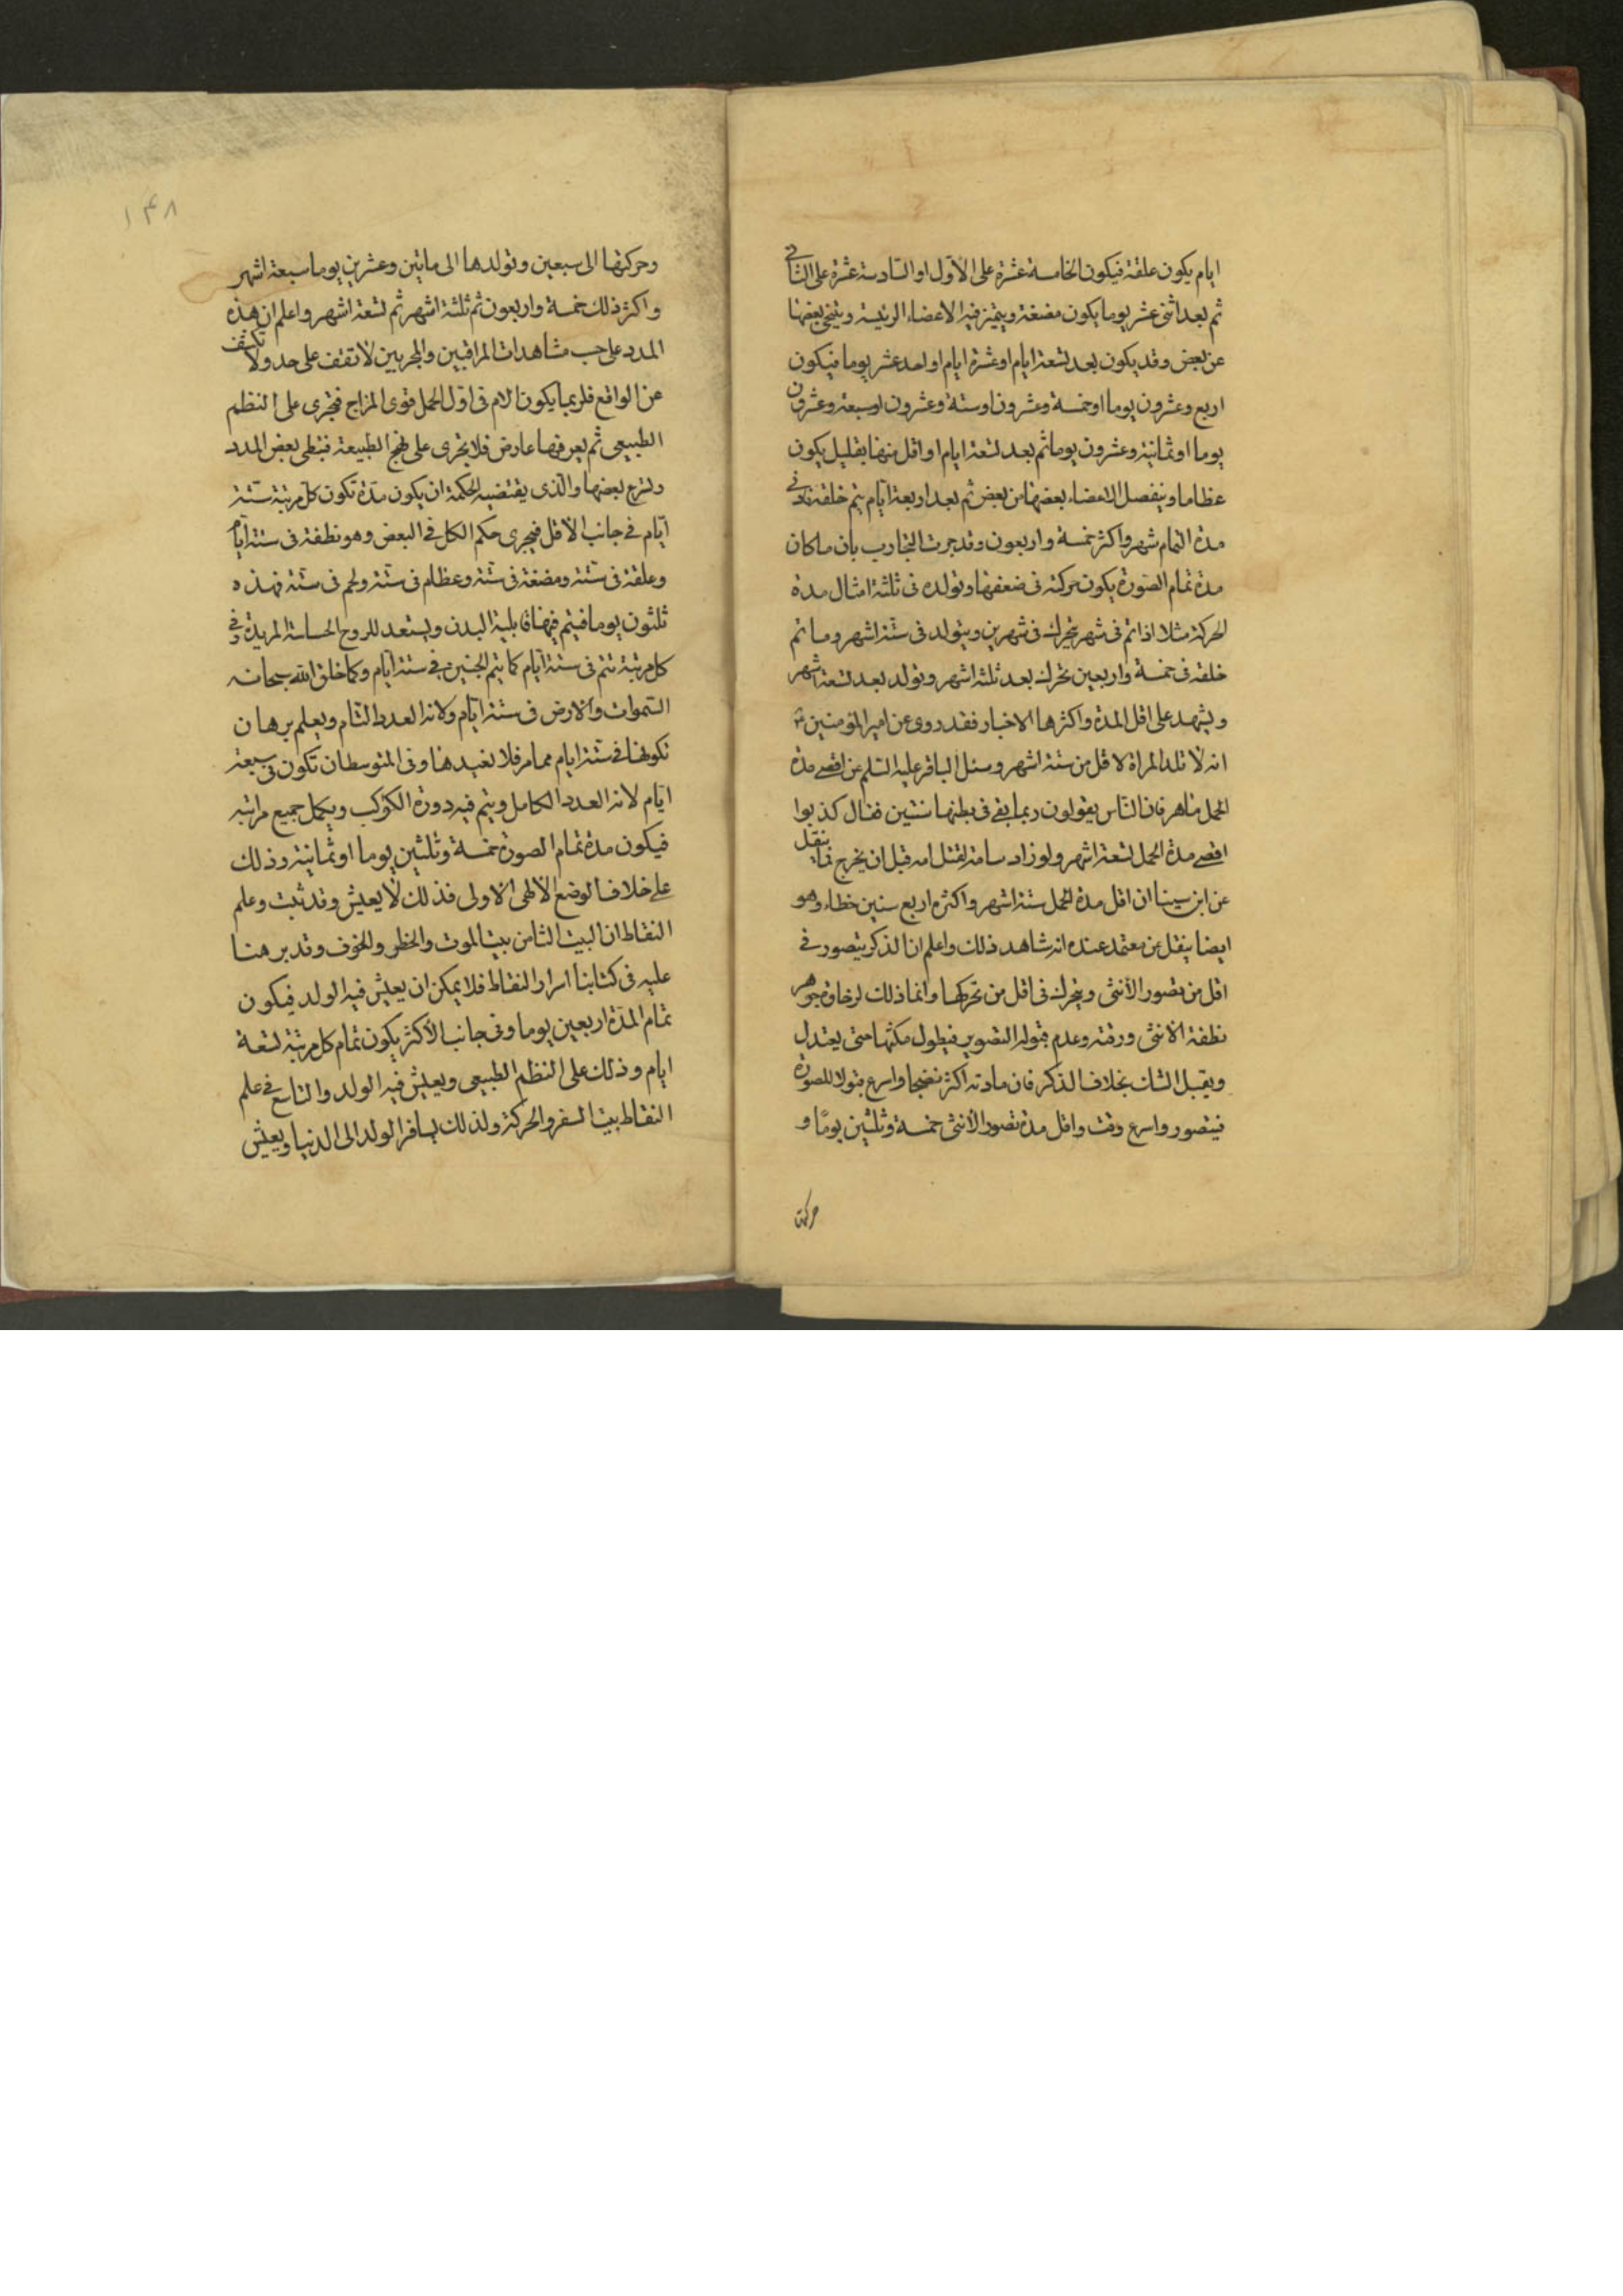 ايام يكون علقة فيكون الخامسة عشرة على الاول او السادسة عشرة على الثاني
ثم بعد اثنى عشر يوما يكون مضغة ويتميز فيه الاعضاء الرئيسة ويتنحى بعضها
عن بعض وقد يكون بعد تسعة ايام او عشرة ايام او احد عشر يوما فيكون
اربع وعشرون يوما او خمسة وعشرون او ستة وعشرون او سبعة وعشرون
يوما او ثمانية وعشرون يوما ثم بعد تسعة ايام او اقل منها بقليل يكون
عظاما وينفصل الاعضاء بعضها من بعض ثم بعد اربعة ايام يتم خلقة
مدة التمام شهر واكثر خمسة واربعون وقد جرت التجارب بان ما كان
مدة تمام الصورة يكون حركته فى ضعفها وتولده فى ثلثة امثال مدة
الحركة مثلا اذا تم فى شهر تحرك فى شهرين ويتولد فى ستة اشهر وما تم
خلقه فى خمسة واربعين تحرك بعد ثلثة اشهر وتولد بعد تسعة اشهر
ويشهد على اقل المدة واكثرها الاخبار فقد روى عن امير المؤمنين ع
انه لا تلد المراة لاقل من ستة اشهر وسئل الباقر عليه السلم عن اقصى مدة
الحمل ما هو فان الناس يقولون ربما بقى فى بطنها سنتين فقال كذبوا
اقصى مدة الحمل تسعة اشهر ولو زاد ساعة لقتل امه قبل ان يخرج فما ينقل
عن ابن سينا ان اقل مدة الحمل ستة اشهر واكثره اربع سنين خطاء وهو
ايضا ينقل عن معتمد عنده انه شاهد ذلك واعلم ان الذكر يتصور فى
اقل من تصور الأنثى ويتحرك فى اقل من تحركها وانما ذلك لرخاوة جوهر
نطفة الانثى ورقته وعدم قبوله التصوير فيطول مكثها حتى يعتدل
ويقبل الشان بخلاف الذكر فان مادته اكثر نضجا واسرع قبولا للصورة
فيتصور واسرع وقت واقل مدة تصور الأنثى خمسة وثلثين يومًا و
حركتها
۱۴۸
وحركتها الى سبعين وتولدها الى مائتين وعشرين يوما سبعة اشهر
واكثر ذلك خمسة واربعون ثم ثلثة اشهر ثم تسعة اشهر واعلم ان هذه
المدد على حسب مشاهدات المراقبين والمجربين لا تقف على حد ولا تكشف
عن الواقع فلربما يكون الام فى اول الحمل قوى المزاج فتجرى على النظم
الطبيعى ثم يعرضها عارض فلا تجرى على نهج الطبيعة فتبطى بعض المدد
وتسرع بعضها والذى يقتضيه الحكمة ان يكون مدة تكون كل مرتبة ستة
ايام فى جانب الاقل فيجرى حكم الكل فى البعض وهو نطفة فى ستة ايام
وعلقة فى ستة ومضغة فى ستة وعظام فى ستة ولحم فى ستة فهذه
ثلثون يوما فيتم فيها قابلية البدن ويستعد للروح الحساسة المريدة وفى
كل مرتبة تتم فى ستة ايام كما يتم الجنين فى ستة ايام وكما خلق الله سبحانه
السموات والارض فى ستة ايام ولانه العدد التام ويعلم برهان
تكونها فى ستة ايام مما مر فلا نعيدها وفى المتوسطان تكون فى سبعة
ايام لانه العدد الكامل ويتم فيه دورة الكوكب ويكمل جميع مراتبه
فيكون مدة تمام الصورة خمسة وثلثين يوما او ثمانية وذلك
على خلاف الوضع الالهى الاولى فذلك لا يعيش وقد ثبت وعلم
النقاط ان البيت الثامن بيت الموت والخطر والخوف وقد برهنا
عليه فى كتابنا اسرار النقاط فلا يمكن ان يعيش فيه الولد فيكون
تمام المدة اربعين يوما وفى جانب الأكثر يكون تمام كل مرتبة تسعة
ايام وذلك على النظم الطبيعى ويعيش فيه الولد والتاسع فى علم
النقاط بيت السفر والحركة ولذلك يسافر الولد الى الدنيا ويعيش